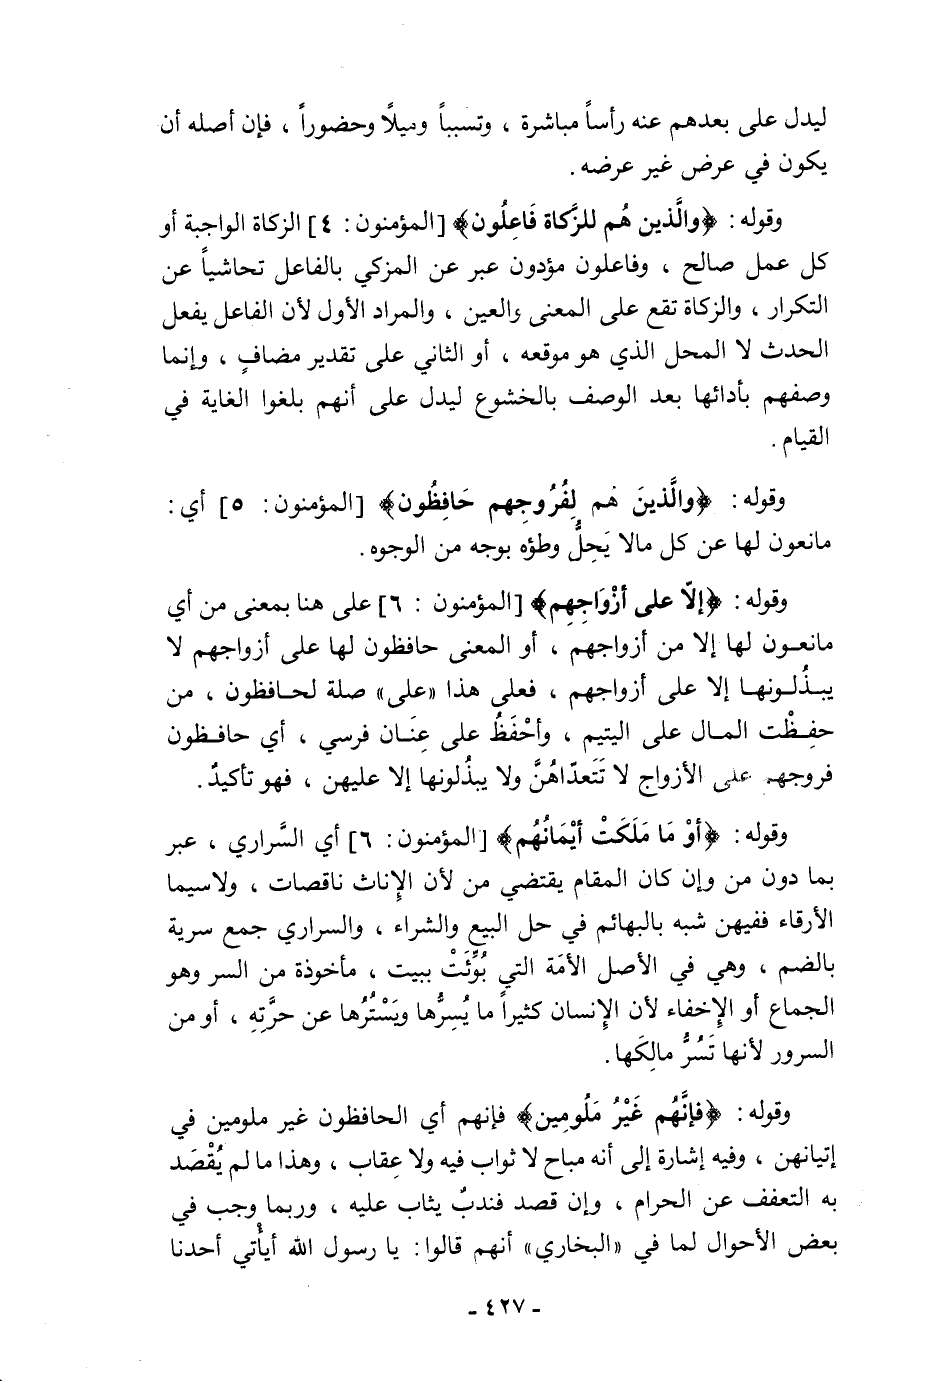 ليدل على بعدهم عنه رأساً مباشرة ، وتسبباً وميلًا وحضوراً ، فإن أصله أن
يكون في عرض غير عرضه .
وقوله : ﴿والَّذين هُم للزَّكاة فَاعِلُون﴾ [المؤمنون : ٤] الزكاة الواجبة أو
كل عمل صالح ، وفاعلون مؤدون عبر عن المزكي بالفاعل تحاشياً عن
التكرار ، والزكاة تقع على المعنى والعين ، والمراد الأول لأن الفاعل يفعل
الحدث لا المحل الذي هو موقعه ، أو الثاني على تقدير مضافٍ ، وإنما
وصفهم بأدائها بعد الوصف بالخشوع ليدل على أنهم بلغوا الغاية في
القيام .
وقوله : ﴿والَّذينَ هُم لِفُرُوجِهم حَافِظُون﴾ [المؤمنون : ٥] أي :
مانعون لها عن كل مالا يَحِلُّ وطؤه بوجه من الوجوه .
وقوله : ﴿إلّا على أزْوَاجِهِم﴾ [المؤمنون : ٦] على هنا بمعنى من أي
مانعون لها إلا من أزواجهم ، أو المعنى حافظون لها على أزواجهم لا
يبذُلونها إلا على أزواجهم ، فعلى هذا «على» صلة لحافظون ، من
حفِظْت المال على اليتيم ، وأحْفَظُ على عِنَان فرسي ، أي حافظون
فروجهم على الأزواج لا تَتَعدّاهُنَّ ولا يبذُلونها إلا عليهن ، فهو تأكيدٌ .
وقوله : ﴿أوْ مَا مَلَكَتْ أيْمَانُهُم﴾ [المؤمنون : ٦] أي السَّراري ، عبر
بما دون من وإن كان المقام يقتضي من لأن الإناث ناقصات ، ولاسيما
الأرقاء ففيهن شبه بالبهائم في حل البيع والشراء ، والسراري جمع سرية
بالضم ، وهي في الأصل الأمَة التي بُوِّئَتْ ببيت ، مأخوذة من السر وهو
الجماع أو الإخفاء لأن الإنسان كثيراً ما يُسِرُّها ويَسْتُرُها عن حرَّتِهِ ، أو من
السرور لأنها تَسُرُّ مالِكَها .
وقوله : ﴿فإنَّهُم غَيْرُ مَلُومِين﴾ فإنهم أي الحافظون غير ملومين في
إتيانهن ، وفيه إشارة إلى أنه مباح لا ثواب فيه ولا عِقاب ، وهذا ما لم يُقْصَد
به التعفف عن الحرام ، وإن قصد فندبٌ يثاب عليه ، وربما وجب في
بعض الأحوال لما في «البخاري» أنهم قالوا : يا رسول الله أيأتي أحدنا
- ٤٢٧ -